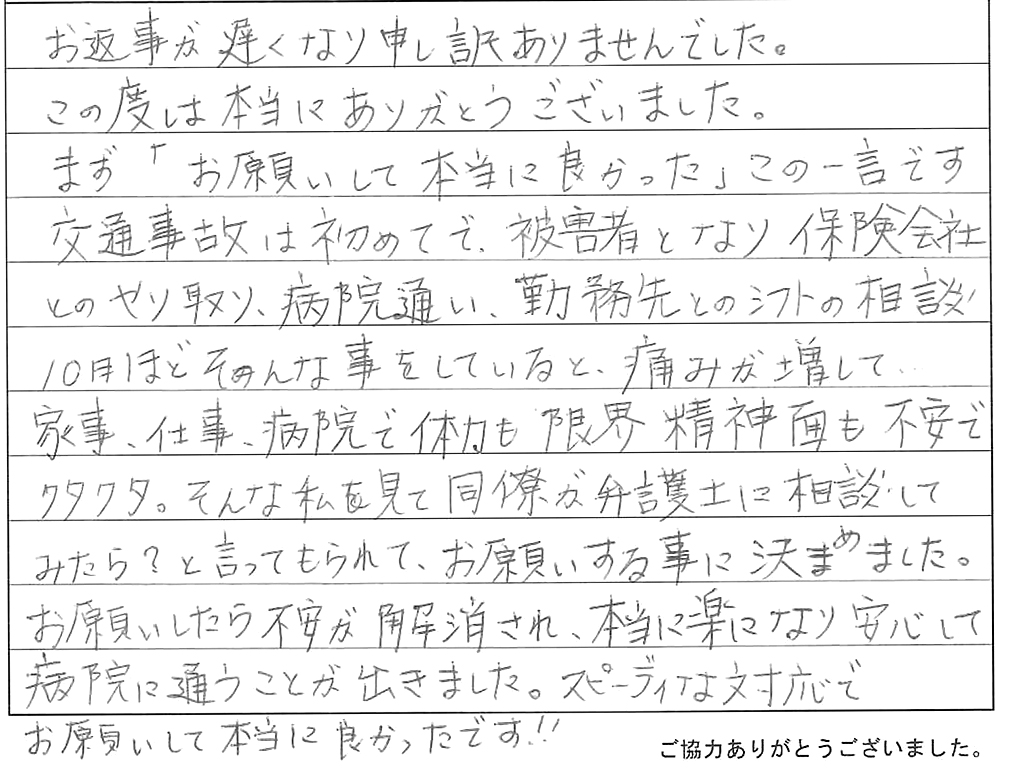 お返事が遅くなり申し訳ありませんでした。
この度は本当にありがとうございました。
まず「お願いして本当に良かった」この一言です
交通事故は初めてで、被害者となり保険会社
とのやり取り、病院通い、勤務先とのシフトの相談
10月ほどそんな事をしていると、痛みが増して…
家事、仕事、病院で体力も限界 精神面も不安で
クタクタ。そんな私を見て同僚が弁護士に相談して
みたら?と言ってもられて、お願いする事に決めました。
お願いしたら不安が解消され、本当に楽になり安心して
病院に通うことが出きました。スピーディな対応で
お願いして本当に良かったです!!
ご協力ありがとうございました。